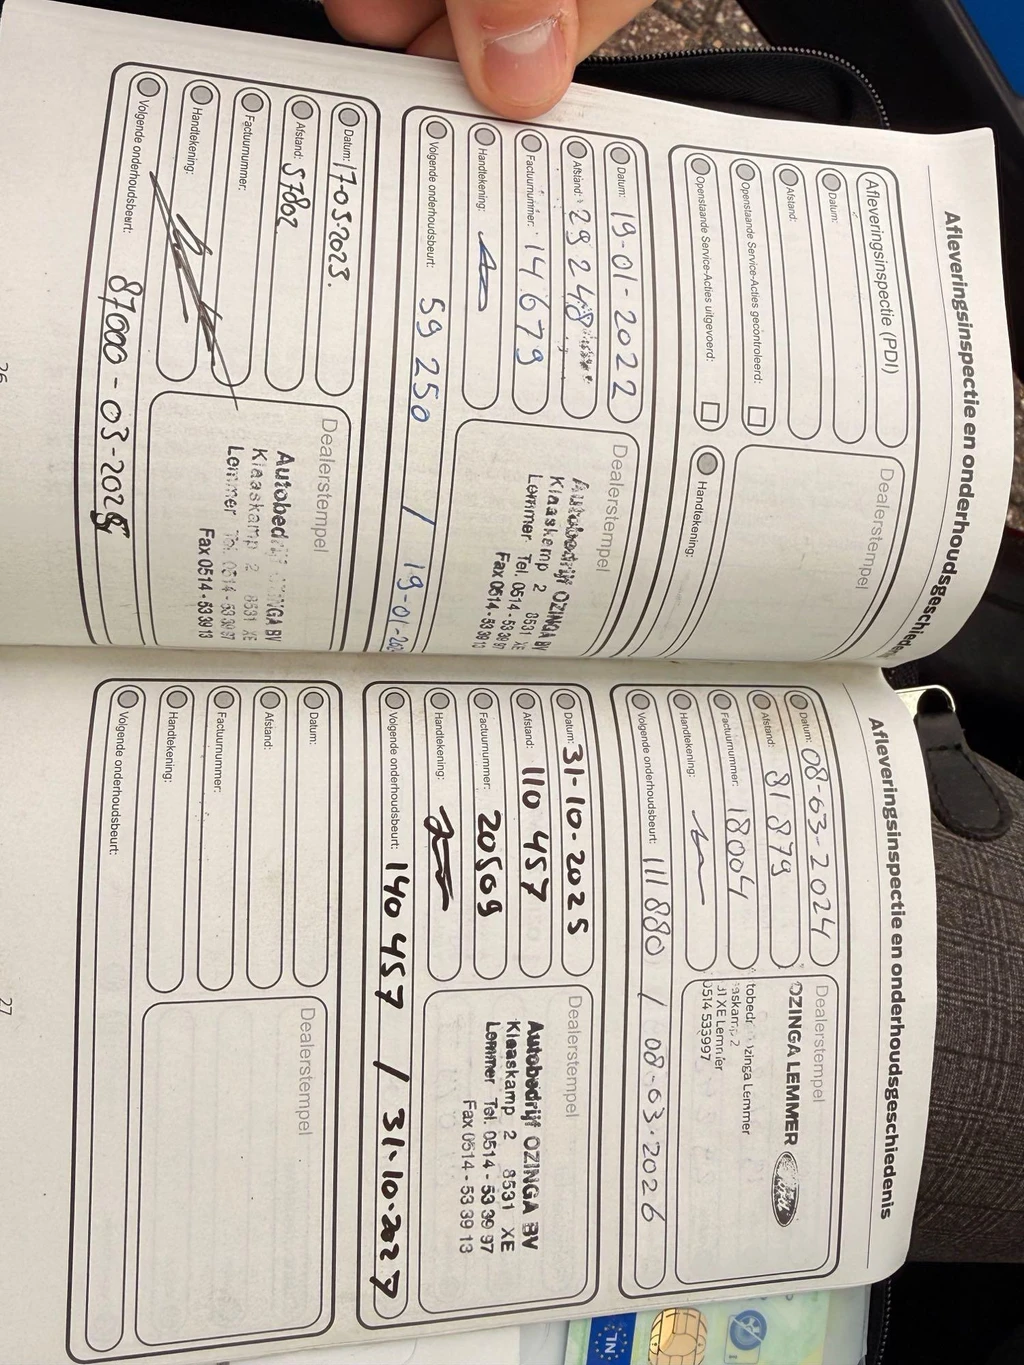 Afleveringsinspectie en onderhoudsgeschiedenis
Afleveringsinspectie (PDI)
Datum:
Afstand:
Openstaande Service-Acties gecontroleerd:
Openstaande Service-Acties uitgevoerd:
Dealerstempel
Handtekening:
Datum: 19-01-2022
Afstand: 29248
Factuurnummer: 14679
Handtekening:
Volgende onderhoudsbeurt: 59250 / 19-01-202
Dealerstempel
Autobedrijf OZINGA BV
Klaaskamp 2 8531 XE
Lemmer Tel. 0514 - 53 39 97
Fax 0514 - 53 39 13
Datum: 17-03-2023.
Afstand: 57802
Factuurnummer:
Handtekening:
Volgende onderhoudsbeurt: 87000 - 03-2025
Dealerstempel
Autobedrijf OZINGA BV
Klaaskamp 2 8531 XE
Lemmer Tel. 0514 - 53 39 97
Fax 0514 - 53 39 13
26
Afleveringsinspectie en onderhoudsgeschiedenis
Datum: 08-03-2024
Afstand: 81879
Factuurnummer: 18004
Handtekening:
Volgende onderhoudsbeurt: 111880 / 08-03-2026
Dealerstempel
OZINGA LEMMER Ford
tobedr zinga Lemmer
askamp 2
31 XE Lemmer
0514 533997
Datum: 31-10-2025
Afstand: 110 457
Factuurnummer: 20509
Handtekening:
Volgende onderhoudsbeurt: 140 457 / 31-10-2027
Dealerstempel
Autobedrijf OZINGA BV
Klaaskamp 2 8531 XE
Lemmer Tel. 0514 - 53 39 97
Fax 0514 - 53 39 13
Datum:
Afstand:
Factuurnummer:
Handtekening:
Volgende onderhoudsbeurt:
Dealerstempel
27
NL